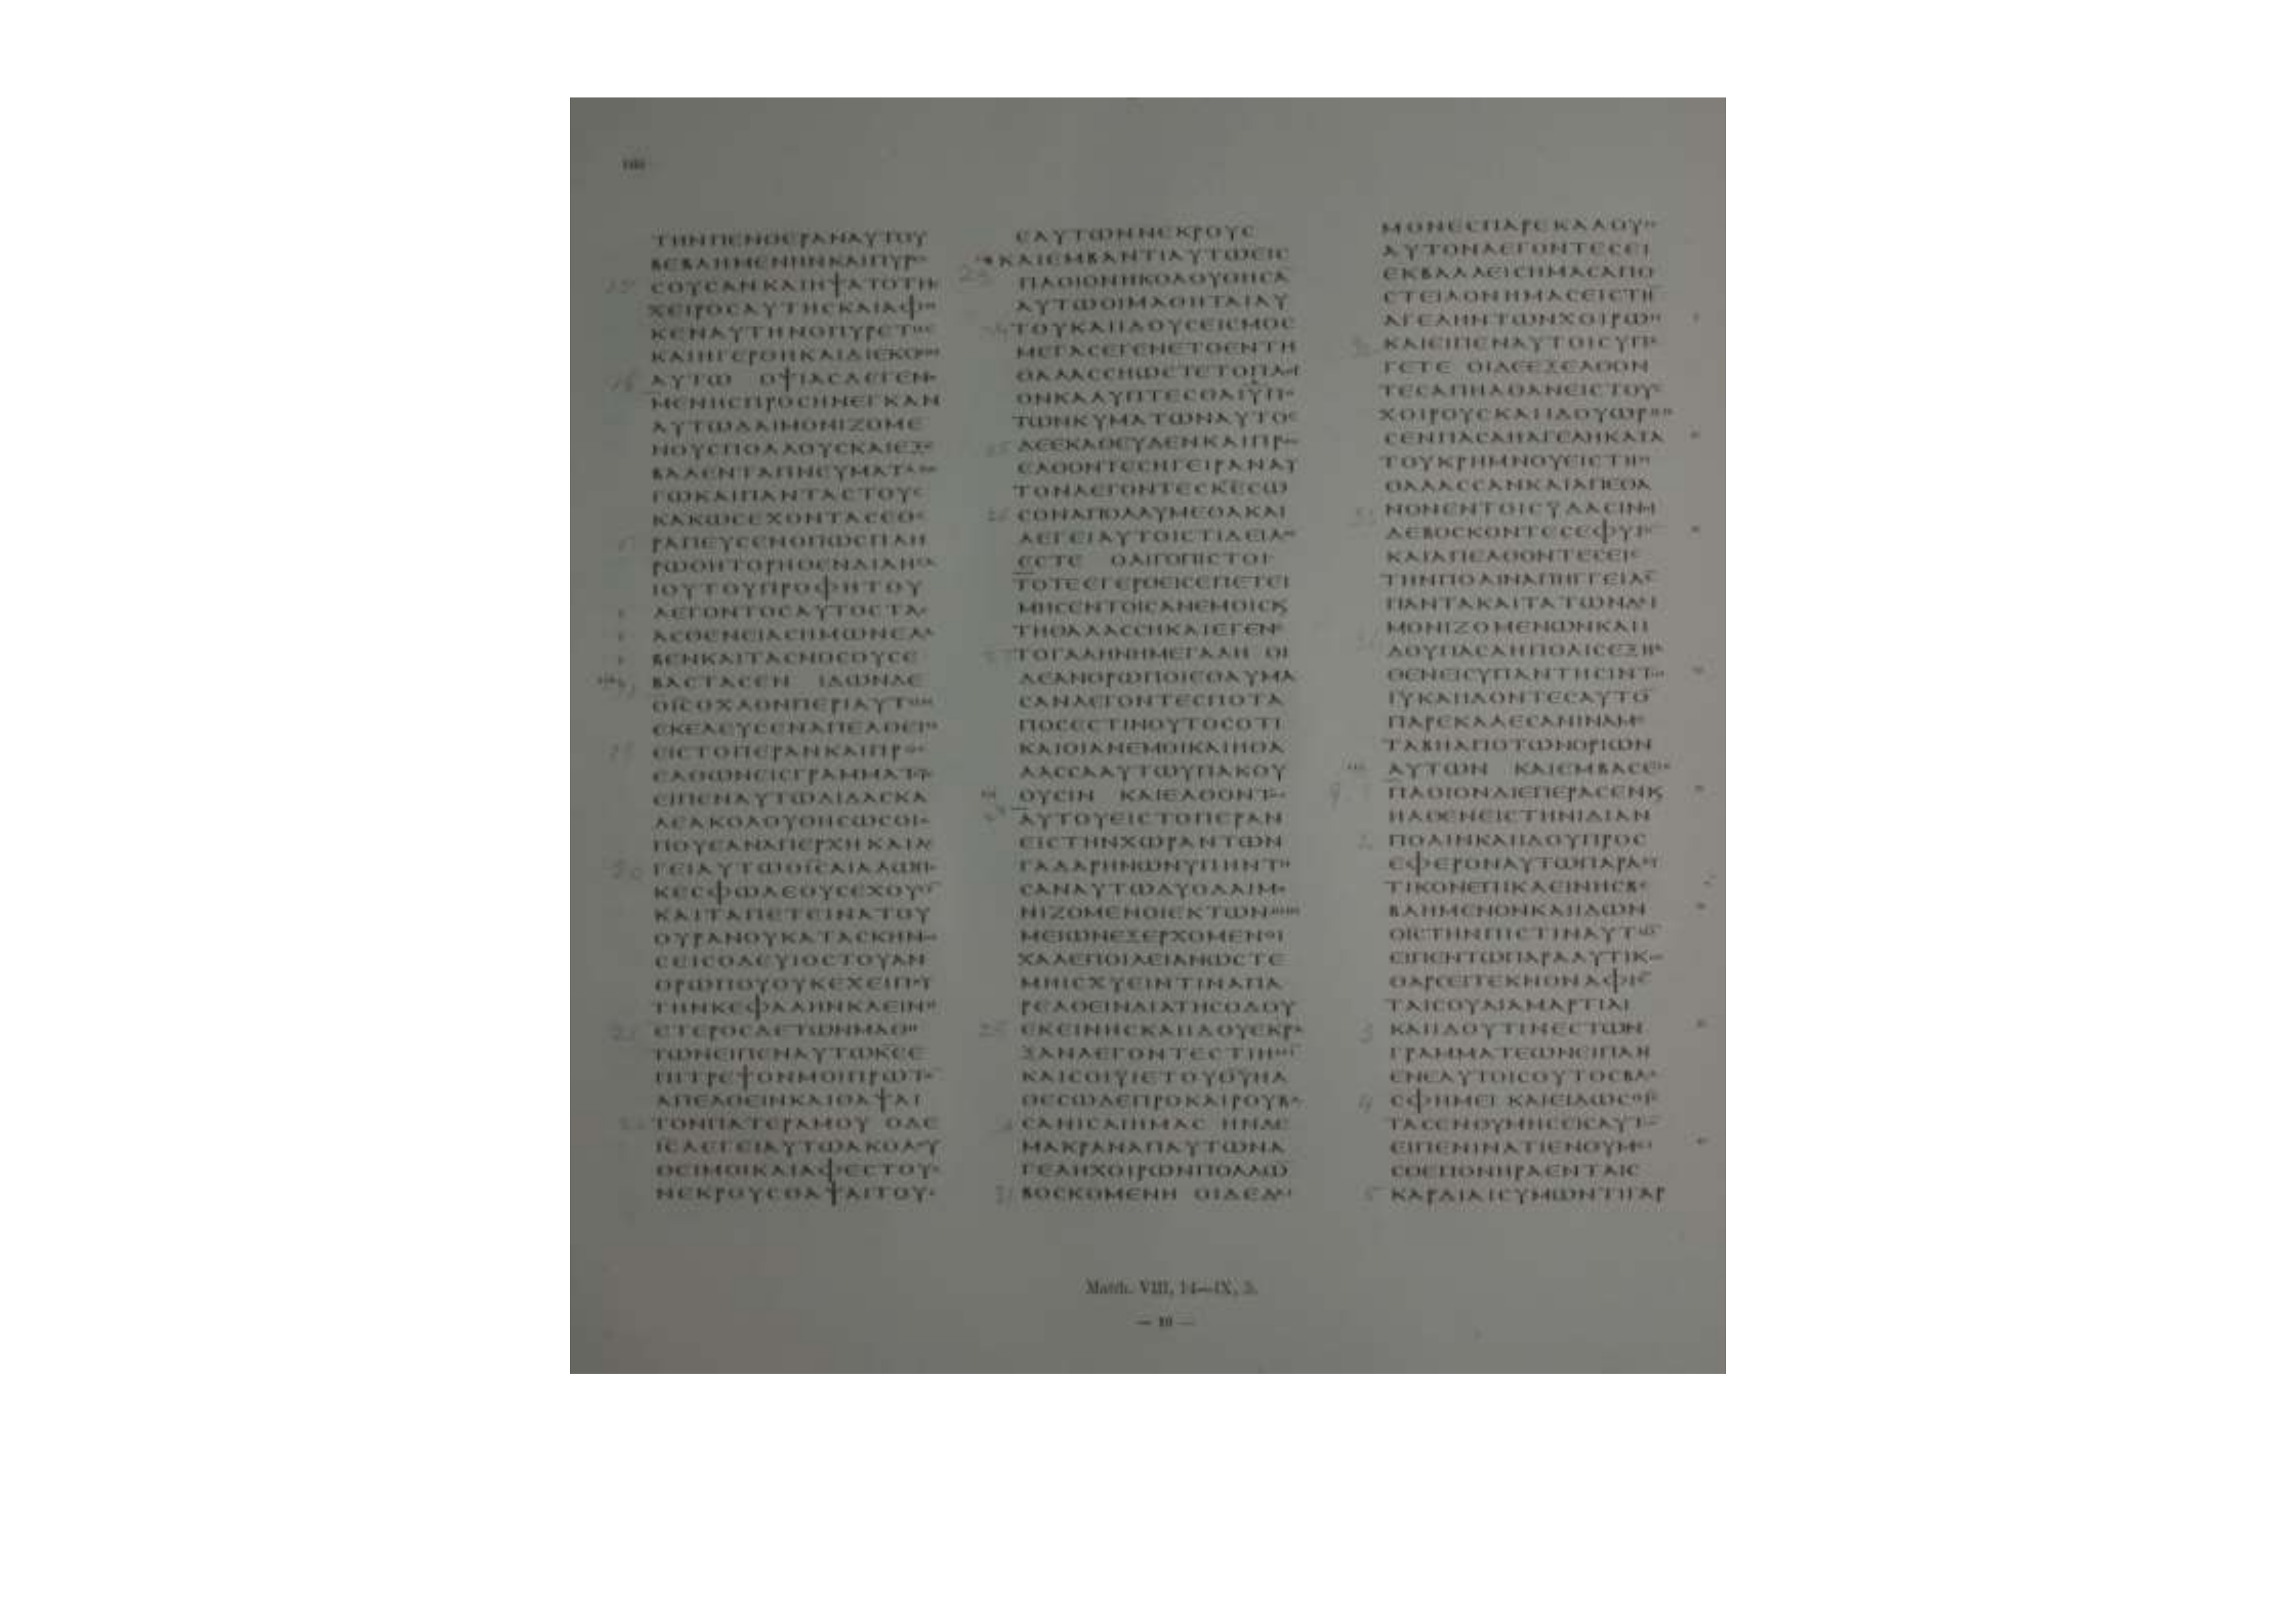 ΤΗΝΠΕΝΘΕΡΑΝΑΥΤΟΥ
ΒΕΒΛΗΜΕΝΗΝΚΑΙΠΥΡΕ
ϹΟΥϹΑΝΚΑΙΗΨΑΤΟΤΗϹ
ΧΕΙΡΟϹΑΥΤΗϹΚΑΙΑΦΗ
ΚΕΝΑΥΤΗΝΟΠΥΡΕΤΟϹ
ΚΑΙΗΓΕΡΘΗΚΑΙΔΙΕΚΟΝΙ
ΑΥΤΩ ΟΨΙΑϹΔΕΓΕΝΟ
ΜΕΝΗϹΠΡΟϹΗΝΕΓΚΑΝ
ΑΥΤΩΔΑΙΜΟΝΙΖΟΜΕ
ΝΟΥϹΠΟΛΛΟΥϹΚΑΙΕΞΕ
ΒΑΛΕΝΤΑΠΝΕΥΜΑΤΑΛΟ
ΓΩΚΑΙΠΑΝΤΑϹΤΟΥϹ
ΚΑΚΩϹΕΧΟΝΤΑϹΕΘΕ
ΡΑΠΕΥϹΕΝΟΠΩϹΠΛΗ
ΡΩΘΗΤΟΡΗΘΕΝΔΙΑΗϹΑ
ΙΟΥΤΟΥΠΡΟΦΗΤΟΥ
ΛΕΓΟΝΤΟϹΑΥΤΟϹΤΑϹ
ΑϹΘΕΝΕΙΑϹΗΜΩΝΕΛΑ
ΒΕΝΚΑΙΤΑϹΝΟϹΟΥϹΕ
ΒΑϹΤΑϹΕΝ ΙΔΩΝΔΕ
ΟΙ̅Ϲ̅ΟΧΛΟΝΠΕΡΙΑΥΤΟΝ
ΕΚΕΛΕΥϹΕΝΑΠΕΛΘΕΙΝ
ΕΙϹΤΟΠΕΡΑΝΚΑΙΠΡΟϹ
ΕΛΘΩΝΕΙϹΓΡΑΜΜΑΤΕΥϹ
ΕΙΠΕΝΑΥΤΩΔΙΔΑϹΚΑ
ΛΕΑΚΟΛΟΥΘΗϹΩϹΟΙΟ
ΠΟΥΕΑΝΑΠΕΡΧΗΚΑΙΛΕ
ΓΕΙΑΥΤΩΟΙ̅Ϲ̅ΑΙΑΛΩΠΕ
ΚΕϹΦΩΛΕΟΥϹΕΧΟΥϹΙ̅
ΚΑΙΤΑΠΕΤΕΙΝΑΤΟΥ
ΟΥΡΑΝΟΥΚΑΤΑϹΚΗΝΩ
ϹΕΙϹΟΔΕΥΙΟϹΤΟΥΑΝ
ΘΡΩΠΟΥΟΥΚΕΧΕΙΠΟΥ
ΤΗΝΚΕΦΑΛΗΝΚΛΕΙΝΗ
ΕΤΕΡΟϹΔΕΤΩΝΜΑΘΗ
ΤΩΝΕΙΠΕΝΑΥΤΩΚ̅Ε̅Ε
ΠΙΤΡΕΨΟΝΜΟΙΠΡΩΤΟ̅
ΑΠΕΛΘΕΙΝΚΑΙΘΑΨΑΙ
ΤΟΝΠΑΤΕΡΑΜΟΥ ΟΔΕ
Ι̅Ϲ̅ΛΕΓΕΙΑΥΤΩΑΚΟΛΟΥ
ΘΕΙΜΟΙΚΑΙΑΦΕϹΤΟΥϹ
ΝΕΚΡΟΥϹΘΑΨΑΙΤΟΥϹ
ΕΑΥΤΩΝΝΕΚΡΟΥϹ
ΚΑΙΕΜΒΑΝΤΙΑΥΤΩΕΙϹ
ΠΛΟΙΟΝΗΚΟΛΟΥΘΗϹΑ̅
ΑΥΤΩΟΙΜΑΘΗΤΑΙΑΥ
ΤΟΥΚΑΙΙΔΟΥϹΕΙϹΜΟϹ
ΜΕΓΑϹΕΓΕΝΕΤΟΕΝΤΗ
ΘΑΛΑϹϹΗΩϹΤΕΤΟΠΛΟΙ
ΟΝΚΑΛΥΠΤΕϹΘΑΙΫΠΟ
ΤΩΝΚΥΜΑΤΩΝΑΥΤΟϹ
ΔΕΕΚΑΘΕΥΔΕΝΚΑΙΠΡΟϹ
ΕΛΘΟΝΤΕϹΗΓΕΙΡΑΝΑΥ
ΤΟΝΛΕΓΟΝΤΕϹΚ̅Ε̅ϹΩ
ϹΟΝΑΠΟΛΛΥΜΕΘΑΚΑΙ
ΛΕΓΕΙΑΥΤΟΙϹΤΙΔΕΙΛΟΙ
ΕϹΤΕ ΟΛΙΓΟΠΙϹΤΟΙ
ΤΟΤΕΕΓΕΡΘΕΙϹΕΠΕΤΕΙ
ΜΗϹΕΝΤΟΙϹΑΝΕΜΟΙϹϏ
ΤΗΘΑΛΑϹϹΗΚΑΙΕΓΕΝΕ
ΤΟΓΑΛΗΝΗΜΕΓΑΛΗ ΟΙ
ΔΕΑΝΘΡΩΠΟΙΕΘΑΥΜΑ
ϹΑΝΛΕΓΟΝΤΕϹΠΟΤΑ
ΠΟϹΕϹΤΙΝΟΥΤΟϹΟΤΙ
ΚΑΙΟΙΑΝΕΜΟΙΚΑΙΗΘΑ
ΛΑϹϹΑΑΥΤΩΥΠΑΚΟΥ
ΟΥϹΙΝ ΚΑΙΕΛΘΟΝΤΟϹ
ΑΥΤΟΥΕΙϹΤΟΠΕΡΑΝ
ΕΙϹΤΗΝΧΩΡΑΝΤΩΝ
ΓΑΔΑΡΗΝΩΝΥΠΗΝΤΗ
ϹΑΝΑΥΤΩΔΥΟΔΑΙΜΟ
ΝΙΖΟΜΕΝΟΙΕΚΤΩΝΜΝΗ
ΜΕΙΩΝΕΞΕΡΧΟΜΕΝΟΙ
ΧΑΛΕΠΟΙΛΕΙΑΝΩϹΤΕ
ΜΗΙϹΧΥΕΙΝΤΙΝΑΠΑ
ΡΕΛΘΕΙΝΔΙΑΤΗϹΟΔΟΥ
ΕΚΕΙΝΗϹΚΑΙΙΔΟΥΕΚΡΑ
ΞΑΝΛΕΓΟΝΤΕϹΤΙΗΜΙ̅
ΚΑΙϹΟΙΥΙΕΤΟΥΘ̅Υ̅ΗΛ
ΘΕϹΩΔΕΠΡΟΚΑΙΡΟΥΒΑ
ϹΑΝΙϹΑΙΗΜΑϹ ΗΝΔΕ
ΜΑΚΡΑΝΑΠΑΥΤΩΝΑ
ΓΕΛΗΧΟΙΡΩΝΠΟΛΛΩ̅
ΒΟϹΚΟΜΕΝΗ ΟΙΔΕΔΑΙ
ΜΟΝΕϹΠΑΡΕΚΑΛΟΥΝ
ΑΥΤΟΝΛΕΓΟΝΤΕϹΕΙ
ΕΚΒΑΛΛΕΙϹΗΜΑϹΑΠΟ
ϹΤΕΙΛΟΝΗΜΑϹΕΙϹΤΗ̅
ΑΓΕΛΗΝΤΩΝΧΟΙΡΩΝ
ΚΑΙΕΙΠΕΝΑΥΤΟΙϹΥΠΑ
ΓΕΤΕ ΟΙΔΕΕΞΕΛΘΟΝ
ΤΕϹΑΠΗΛΘΑΝΕΙϹΤΟΥϹ
ΧΟΙΡΟΥϹΚΑΙΙΔΟΥΩΡΜΗ
ϹΕΝΠΑϹΑΗΑΓΕΛΗΚΑΤΑ
ΤΟΥΚΡΗΜΝΟΥΕΙϹΤΗΝ
ΘΑΛΑϹϹΑΝΚΑΙΑΠΕΘΑ
ΝΟΝΕΝΤΟΙϹΥΔΑϹΙΝΟΙ
ΔΕΒΟϹΚΟΝΤΕϹΕΦΥΓΟ̅
ΚΑΙΑΠΕΛΘΟΝΤΕϹΕΙϹ
ΤΗΝΠΟΛΙΝΑΠΗΓΓΕΙΛΑ̅
ΠΑΝΤΑΚΑΙΤΑΤΩΝΔΑΙ
ΜΟΝΙΖΟΜΕΝΩΝΚΑΙΙ
ΔΟΥΠΑϹΑΗΠΟΛΙϹΕΞΗΛ
ΘΕΝΕΙϹΥΠΑΝΤΗϹΙΝΤΩ
Ι̅Υ̅ΚΑΙΙΔΟΝΤΕϹΑΥΤΟ̅
ΠΑΡΕΚΑΛΕϹΑΝΙΝΑΜΕ
ΤΑΒΗΑΠΟΤΩΝΟΡΙΩΝ
ΑΥΤΩΝ ΚΑΙΕΜΒΑϹΕΙϹ
ΠΛΟΙΟΝΔΙΕΠΕΡΑϹΕΝϏ
ΗΛΘΕΝΕΙϹΤΗΝΙΔΙΑΝ
ΠΟΛΙΝΚΑΙΙΔΟΥΠΡΟϹ
ΕΦΕΡΟΝΑΥΤΩΠΑΡΑΛΥ
ΤΙΚΟΝΕΠΙΚΛΕΙΝΗϹΒΕ
ΒΛΗΜΕΝΟΝΚΑΙΙΔΩΝ
ΟΙ̅Ϲ̅ΤΗΝΠΙϹΤΙΝΑΥΤΩ̅
ΕΙΠΕΝΤΩΠΑΡΑΛΥΤΙΚΩ
ΘΑΡϹΕΙΤΕΚΝΟΝΑΦΙΕ̅
ΤΑΙϹΟΥΑΙΑΜΑΡΤΙΑΙ
ΚΑΙΙΔΟΥΤΙΝΕϹΤΩΝ
ΓΡΑΜΜΑΤΕΩΝΕΙΠΑΝ
ΕΝΕΑΥΤΟΙϹΟΥΤΟϹΒΛΑ
ϹΦΗΜΕΙ ΚΑΙΕΙΔΩϹΟΙ̅Ϲ̅
ΤΑϹΕΝΘΥΜΗϹΕΙϹΑΥΤΩ̅
ΕΙΠΕΝΙΝΑΤΙΕΝΘΥΜΕΙ
ϹΘΕΠΟΝΗΡΑΕΝΤΑΙϹ
ΚΑΡΔΙΑΙϹΥΜΩΝΤΙΓΑΡ
Matth. VIII, 14—IX, 5.
— 10 —